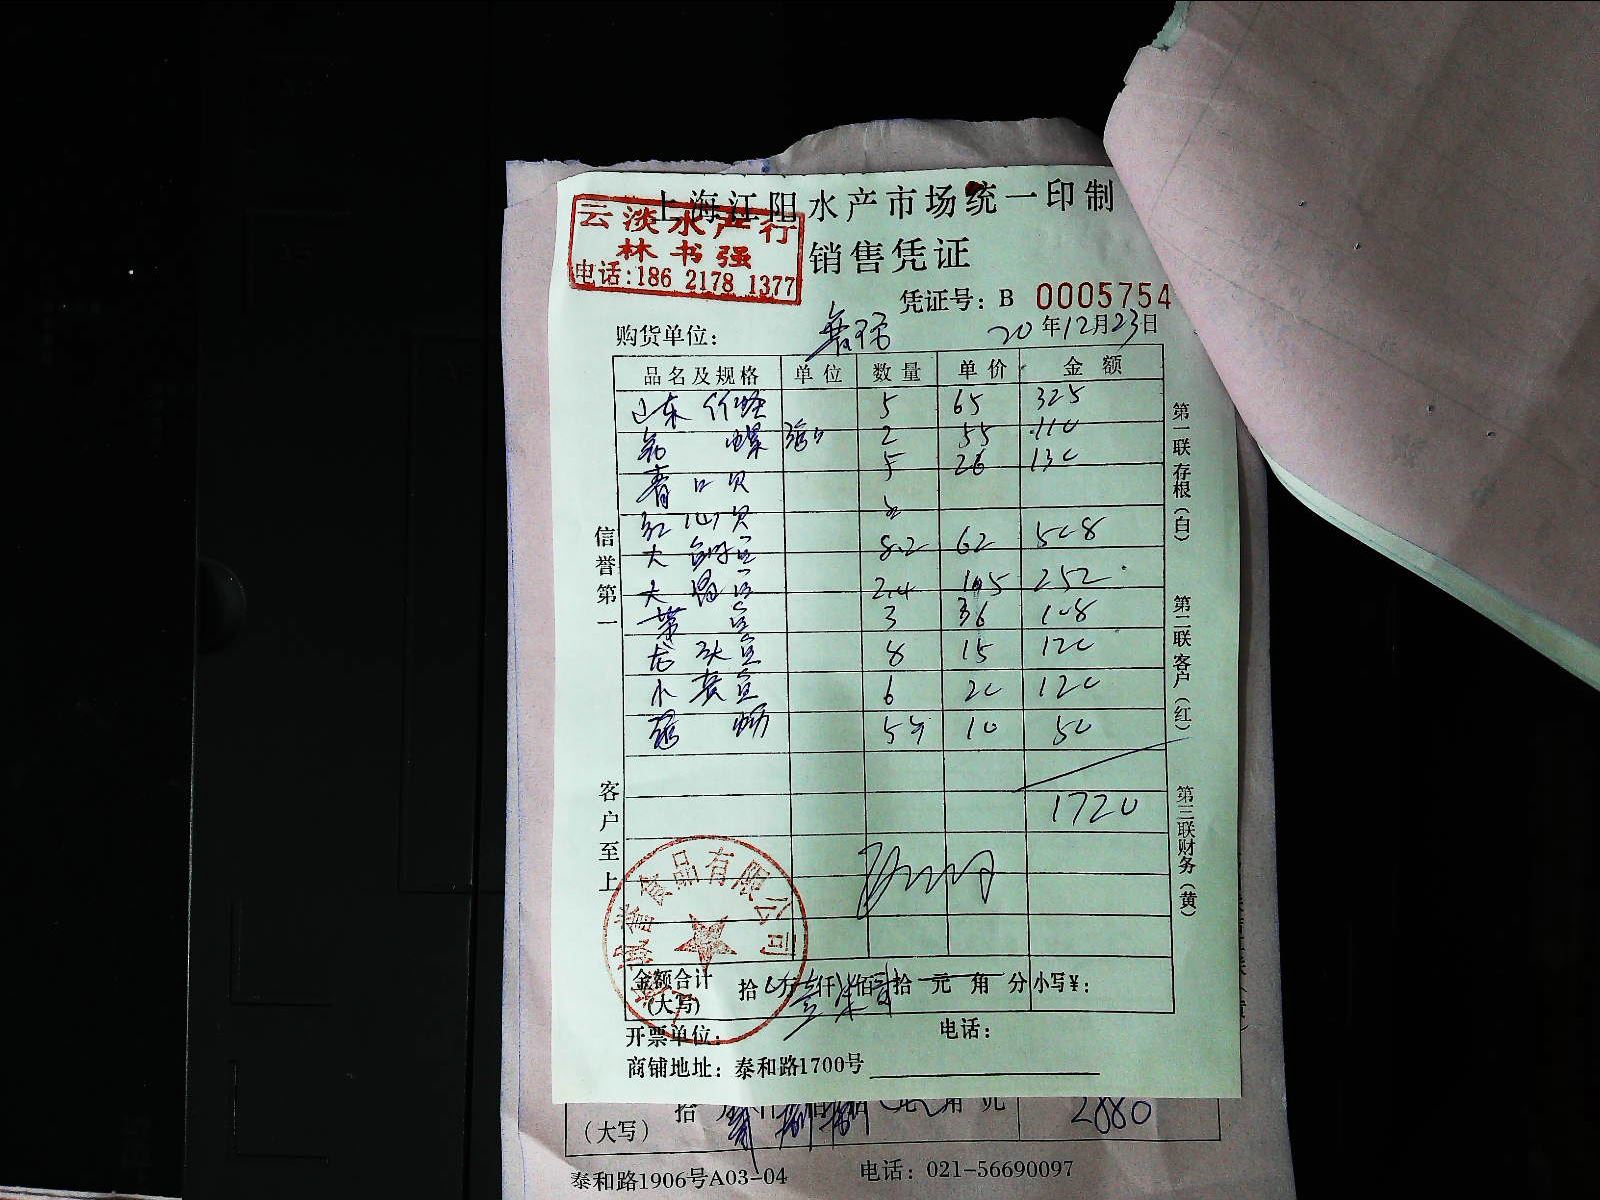 上海江阳水产市场统一印制
云淡水产行
林书强
电话:186 2178 1377
销售凭证
凭证号: B 0005754
购货单位:
20年12月23日
品名及规格 单位 数量 单价 金额
山东 5 65 325
花螺 2 55 110
青口贝 5 26 130
红 贝
大 8.2 62 508
大 2.4 105 252
带鱼 3 36 108
龙头鱼 8 15 120
小黄鱼 6 20 120
5斤 10 50
1720
信誉第一
客户至上
第一联存根(白)
第二联客户(红)
第三联财务(黄)
食品有限公司
金额合计(大写) 拾 万壹仟柒佰贰拾元角分 小写¥:
开票单位: 电话:
商铺地址: 泰和路1700号
(大写) 拾 2880
泰和路1906号A03-04 电话: 021-56690097